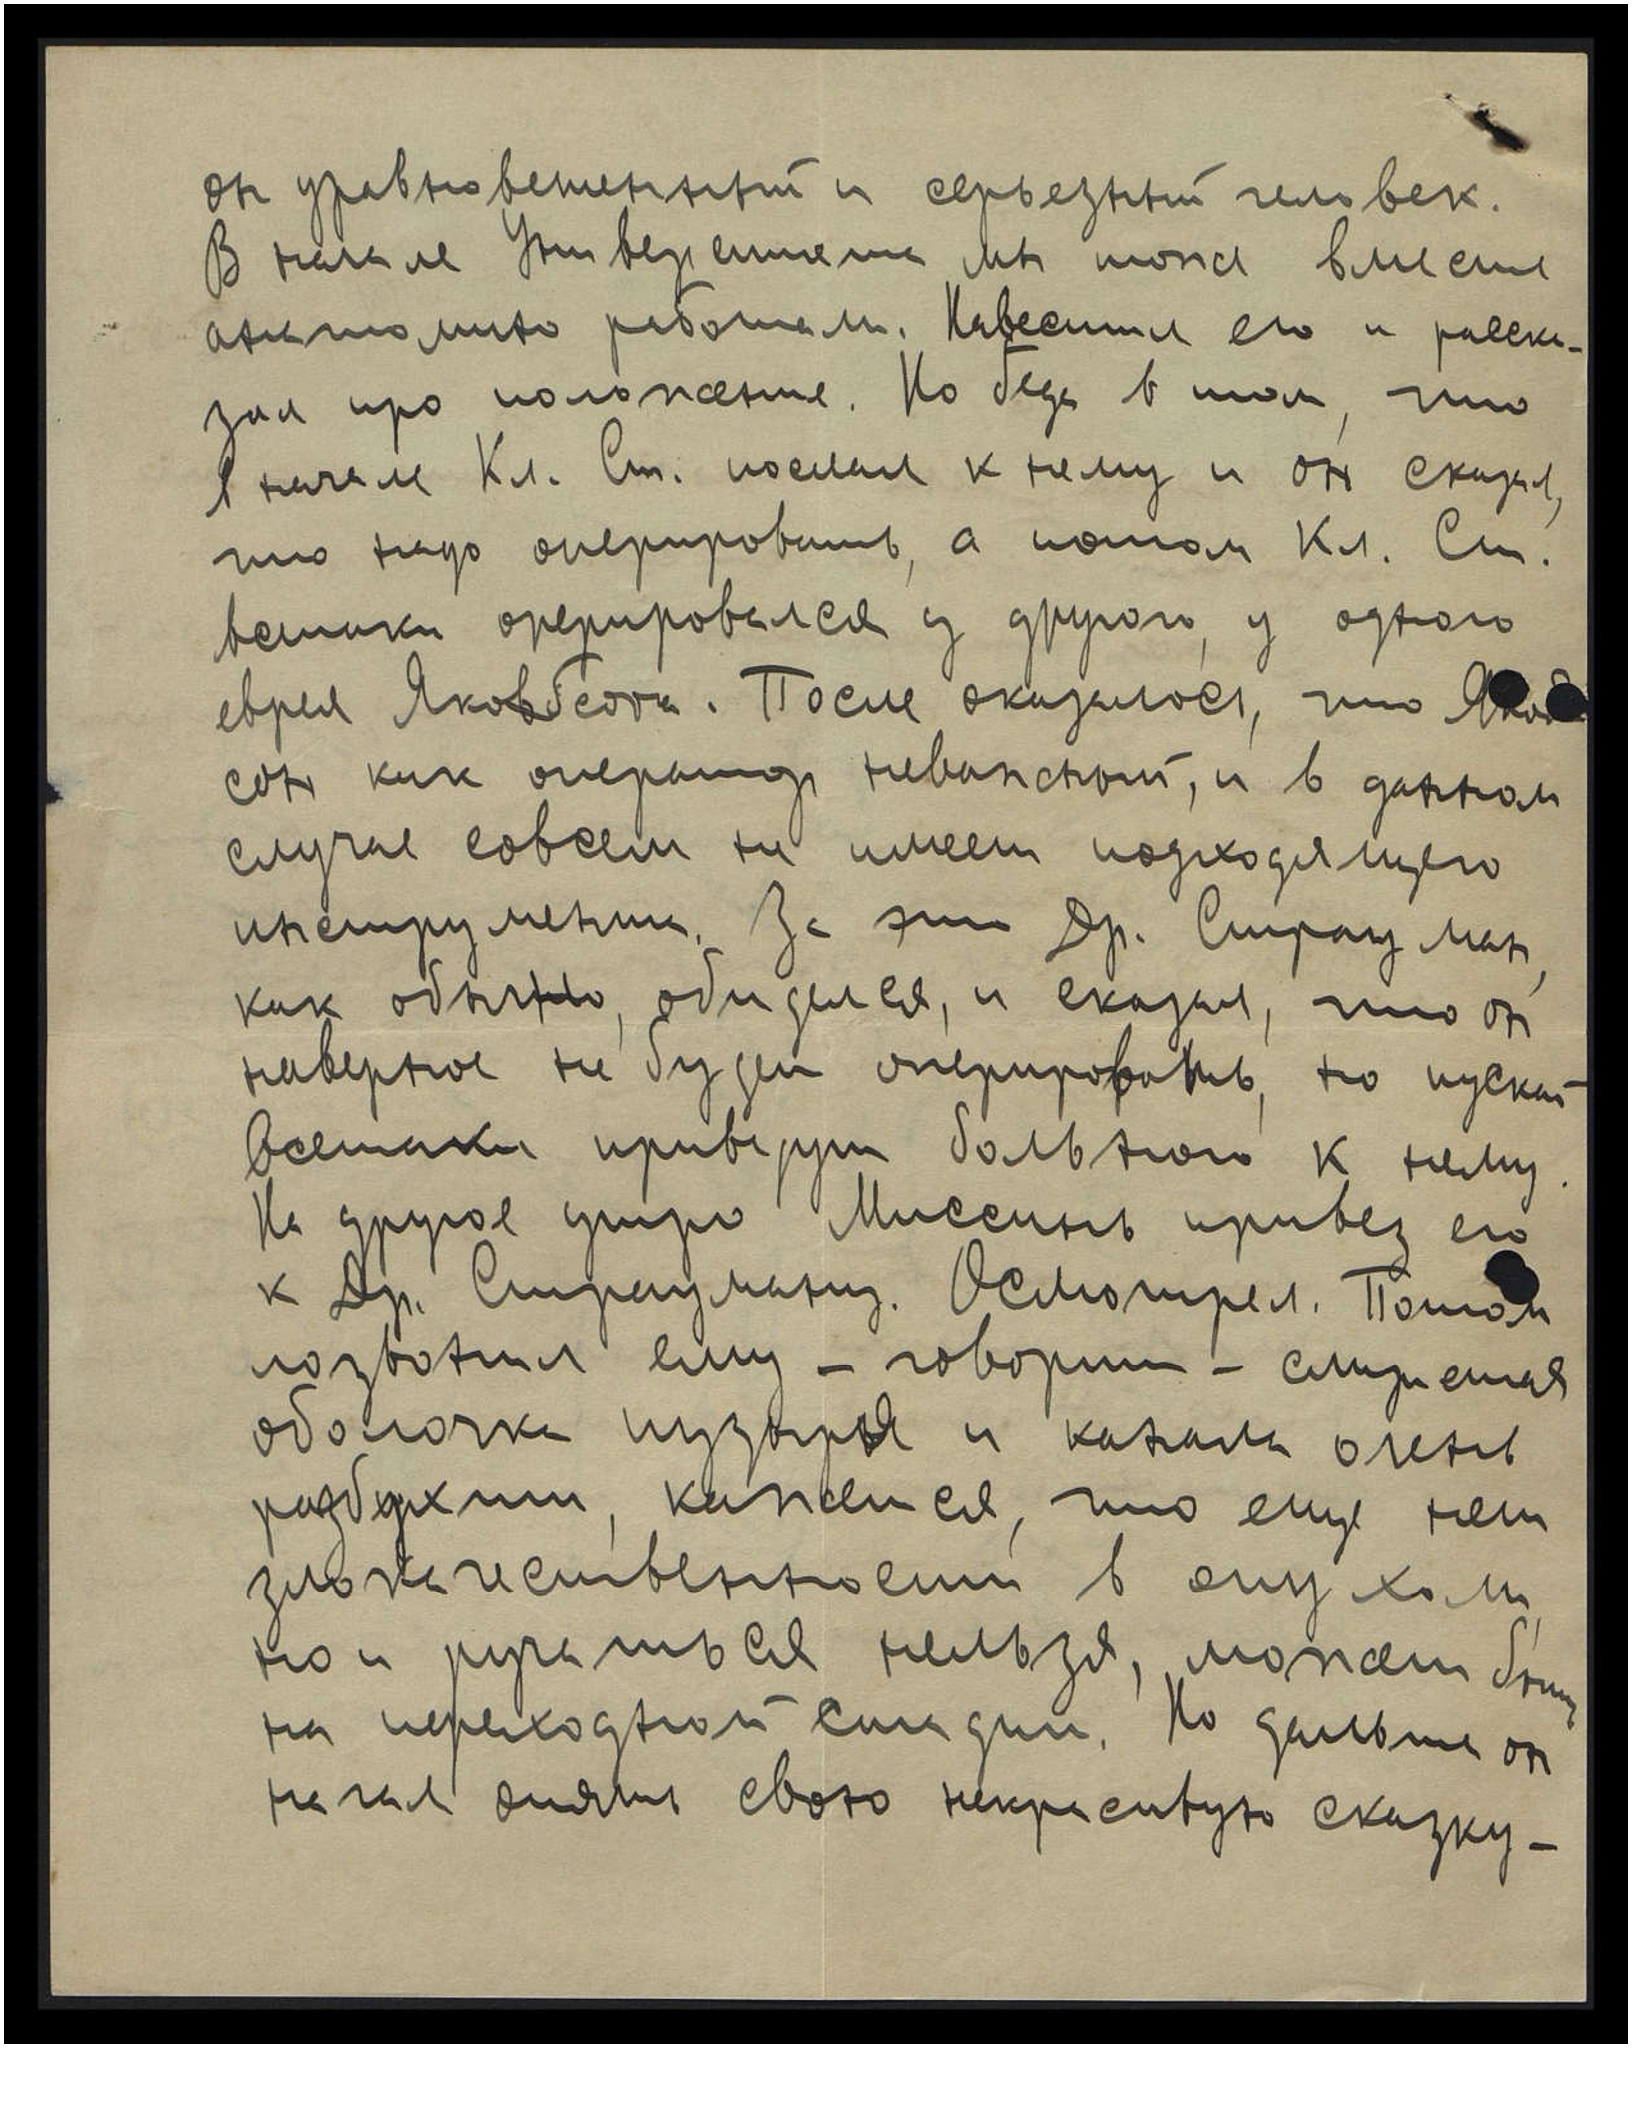 он уравновешенный и серьезный человек.
В начале Университета мы тоже вместе
анатомию работали. Навестил его и расска-
зал про положение. Но беда в том, что
в начале Кл. Ст. послал к нему и он сказал,
что надо оперировать, а потом Кл. Ст.
всетаки оперировался у другого, у одного
еврея Якобсона. После оказалось, что Якоб
сон как оператор неважный, и в данном
случае совсем не имеет подходящего
инструмента. За это Др. Страуман,
как обычно, обиделся, и сказал, что он
наверное не будет оперировать, но пускай
всетаки привезут больного к нему.
На другое утро Миссинь привез его
к Др. Страуману. Осмотрел. Потом
позвонил ему – говорит – слизистая
оболочка пузыря и канала очень
разбухши, кажется, что еще нет
злокачественности в опухоли,
но и ручаться нельзя, может быть
на переходной стадии. Но дальше он
начал опять свою некрасивую сказку –